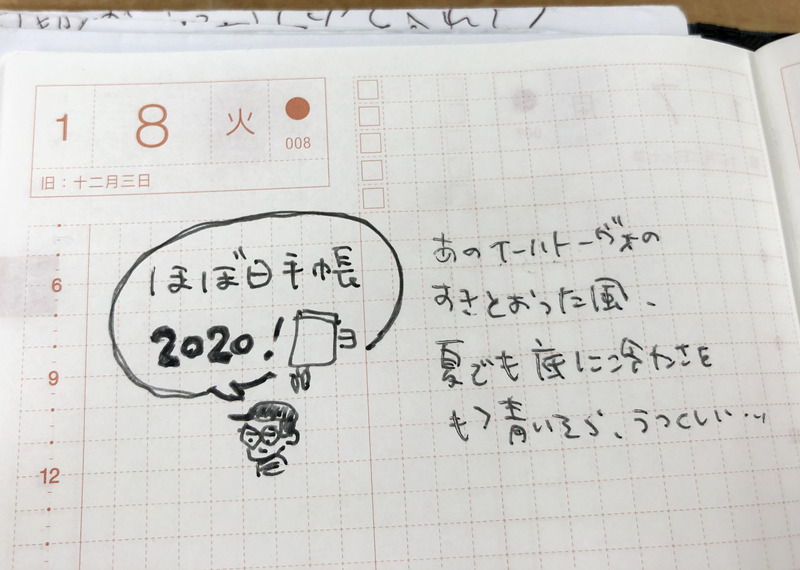 1
8
火
008
旧：十二月三日
6
9
12
ほぼ日手帳
2020!
あのイーハトーヴォの
すきとおった風、
夏でも底に冷たさを
もつ青いそら、うつくしい…